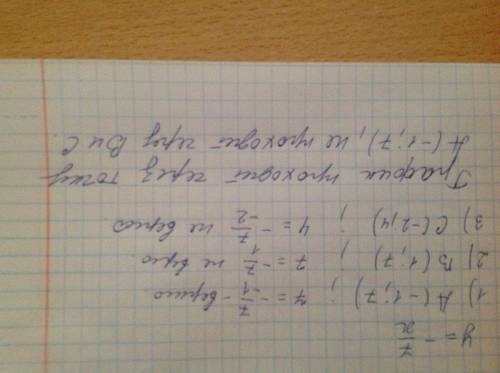 y = - 7/x
1) A(-1; 7) ; 7 = - 7/-1 - верно.
2) B(1; 7) ; 7 = - 7/1 не верно
3) C(-2; 4) ; 4 = - 7/-2 не верно
График проходит через точку
A(-1; 7), не проходит через B и C.